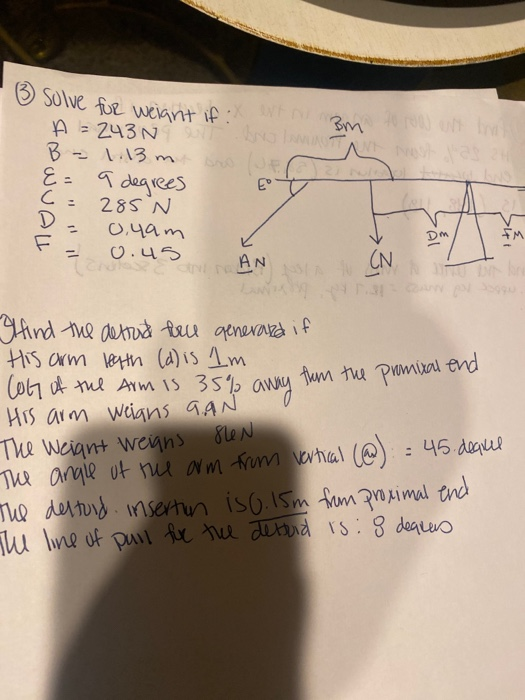 ③ Solve for weight if :
A = 243 N
B = 1.13 m
E = 9 degrees
C = 285 N
D = 0.49m
F = 0.45
Bm
E°
AN
CN
Dm
Fm
find the deltoid force generated if
His arm length (d) is 1m
COG of the Arm is 35% away from the promixal end
His arm weighs 9.9N
The weight weighs N
The angle of the arm from vertical (@) : = 45 degree
The deltoid insertion is 0.15m from proximal end
The line of pull for the deltoid is : 8 degrees